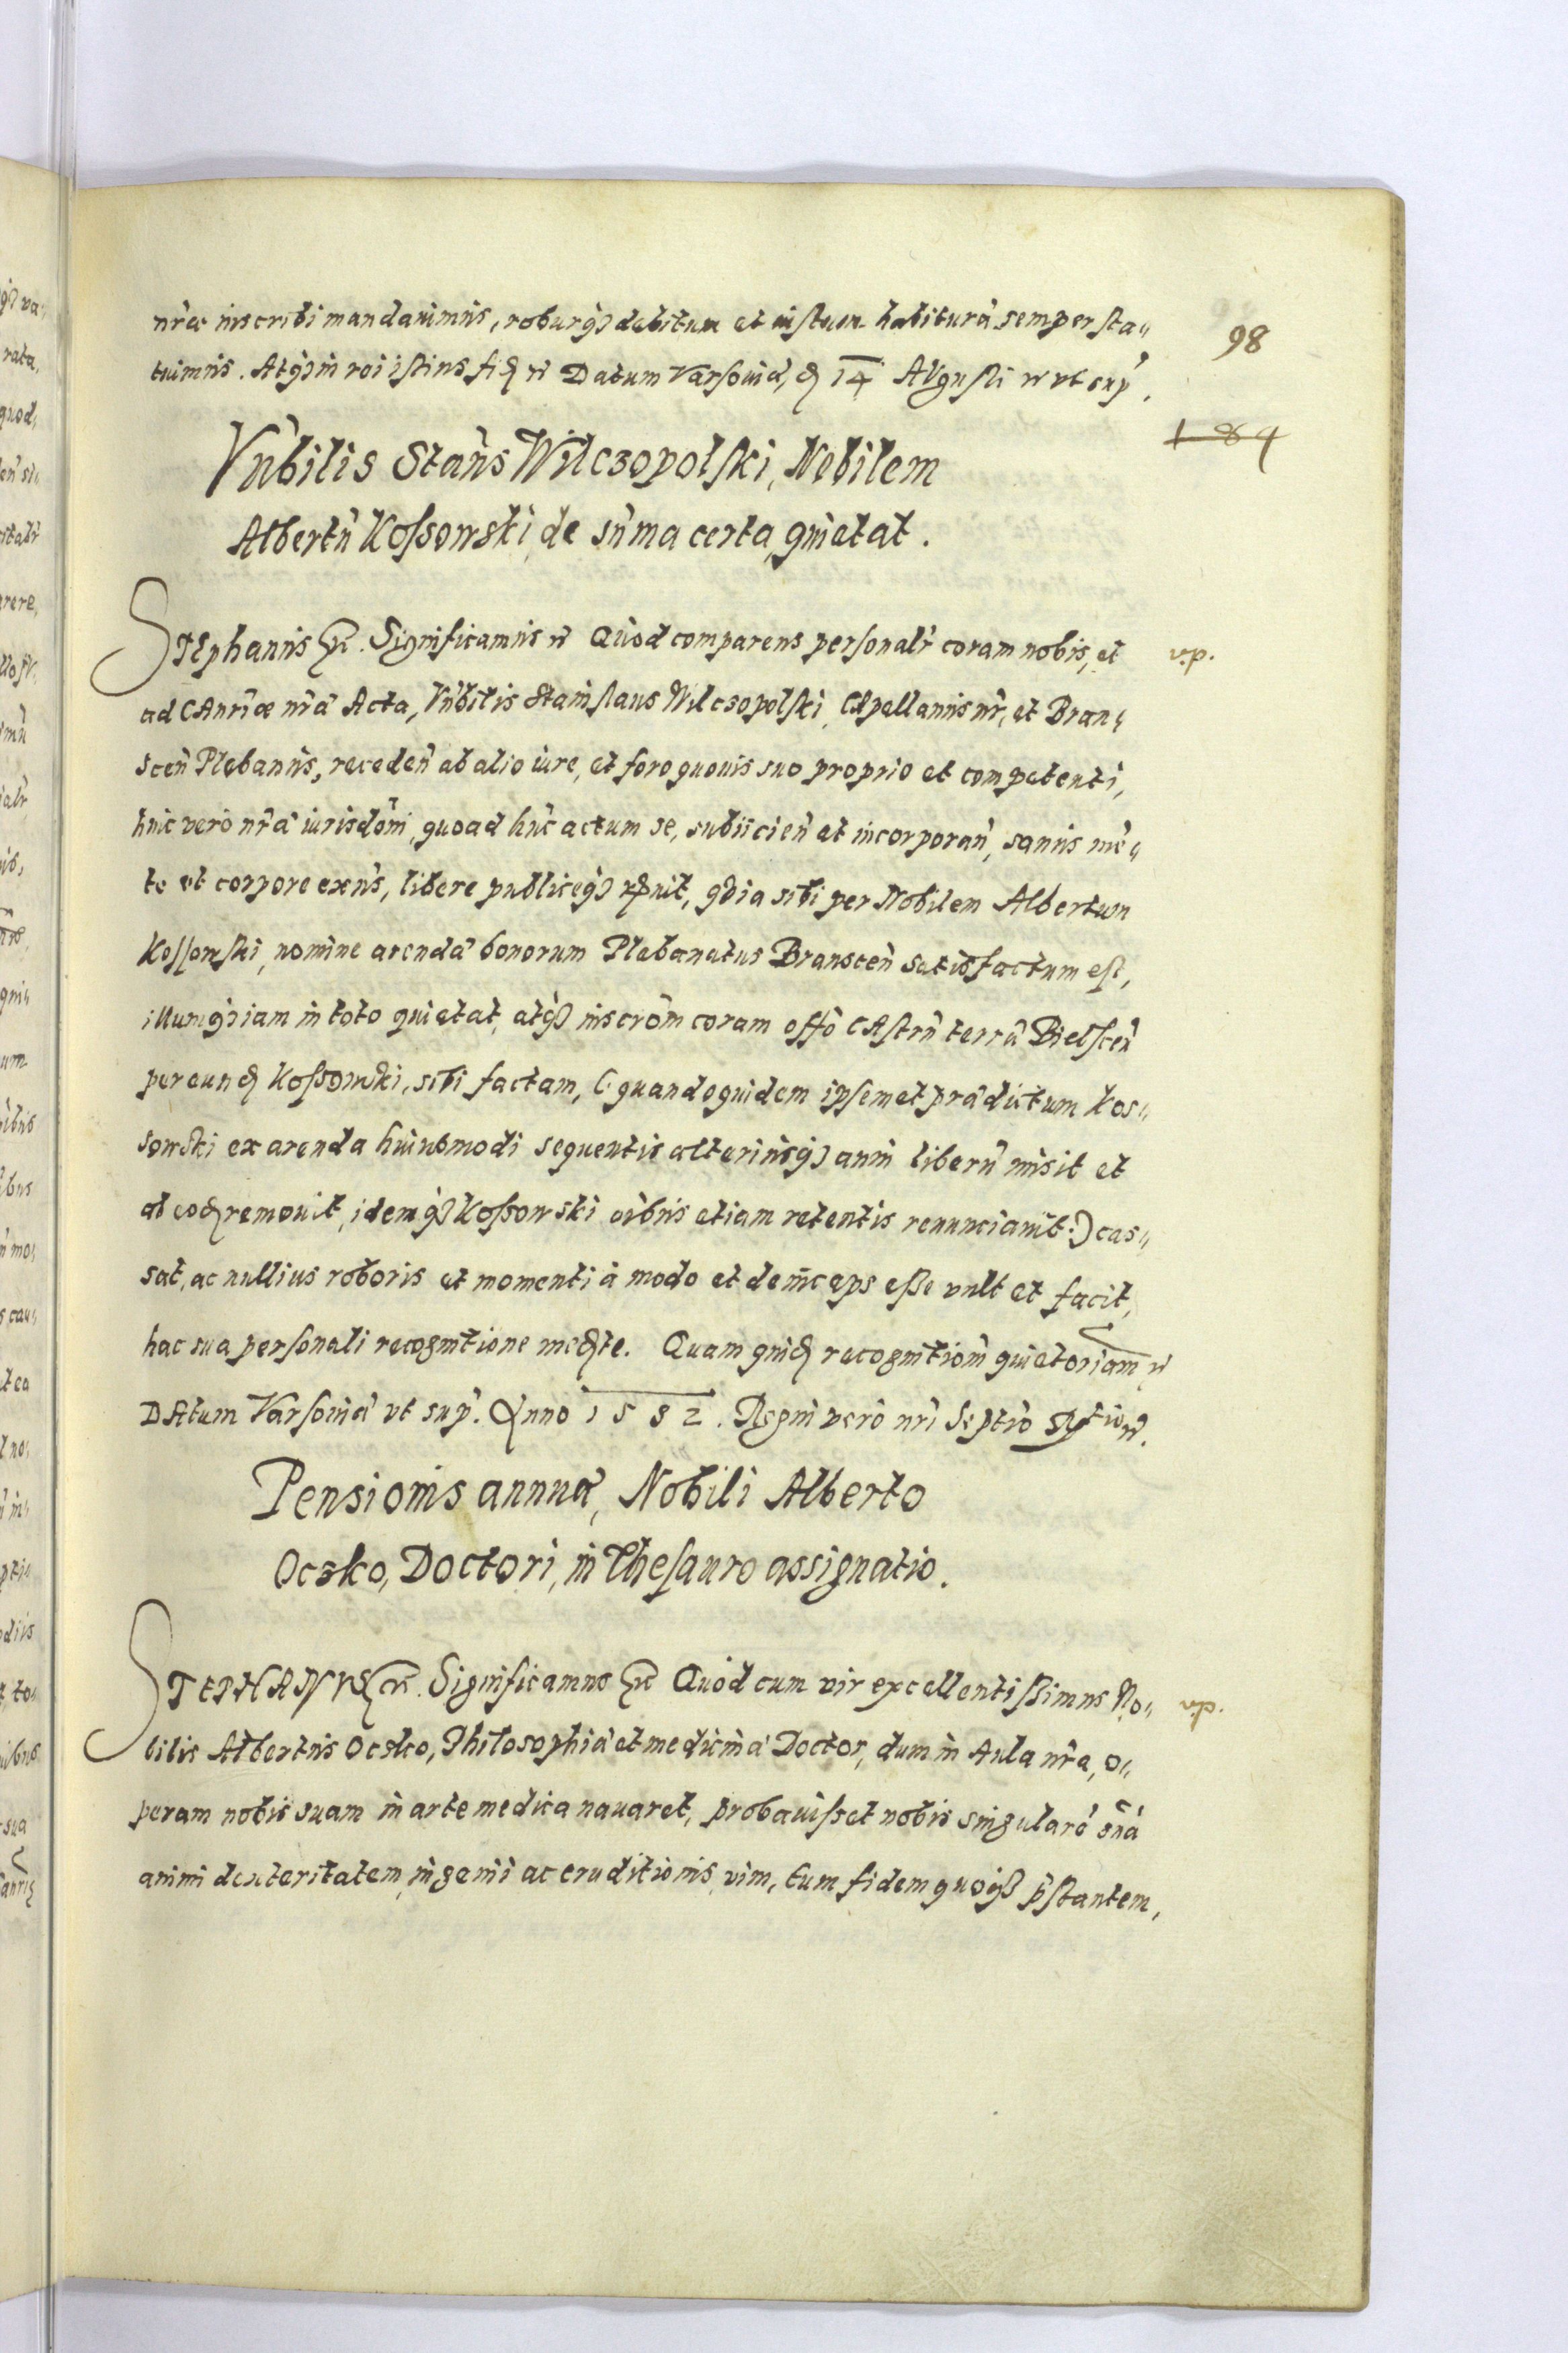 98
184
nr̃ae inscribi mandauimus, roburq₃ debitum et iustum habiturã semper sta„
tuimus. Atq₃ in rei istius fiđ rc̃ Datum Varsouiæ, đ 14 Augusti rc̃ vt sup̃.
Vñbilis Stañs Wilczopolski, Nobilem
Albertũ Kossowski, de sũma certa, quietat.
STEphanus rc̃. Significamus rc̃ Quòd comparens personalr̃ coram nobis, et
v.p.
ad CAnr̃iæ nr̃æ Acta, Vñbilis Stanislaus Wilczopolski, CApellanus nr̃, et Bran„
sceñ Plebanus, recedeñ ab alio iure, et foro quouis suo proprio et competenti,
huic verò nr̃æ iurisdõni, quoad hũc actum se, subiicieñ et incorporañ, sanus mẽ„
te et corpore exñs, libere publiceq₃ recognouit, quia sibi per Nobilem Albertum
Kossowski, nomine arendæ bonorum Plebanatus Bransceñ satisfactum est,
illumq₃ iam in toto quietat, atq₃ inscrõm coram offõ CAstrñ terræ Bielsceñ
per eunđ Kossowski, sibi factam, (: quandoquidem ipsemet prædictum Kos„
sowski ex arenda huiusmodi sequentis alteriusq₃ anni liberũ misit et
ab eođ remouit, idemq₃ Kossowski oibus etiam retentis renunciauit :) cas„
sat, ac nullius roboris et momenti à modo et deinceps esse vult et facit,
hac sua personali recognitione medte. Quam quiđ recognitiom̃ quietoriam rc̃
DAtum Varsouiæ vt sup̃. Anno 1582. Regni verò nr̃i Septĩo rc̃.
Pensionis annuæ, Nobili Alberto
Oczko, Doctori, in Thesauro assignatio.
STEPHANVS rc̃. Significamus rc̃ Quòd cum vir excellentissimus No„
v.p.
bilis Albertus Oczko, Philosophiæ et medicinæ Doctor, dum in Aula nr̃a, o„
peram nobis suam in arte medica nauaret, probauisset nobis singularẽ suã
animi dexteritatem, ingenii ac eruditionis vim, tum fidem quoq₃ p̃stantem,